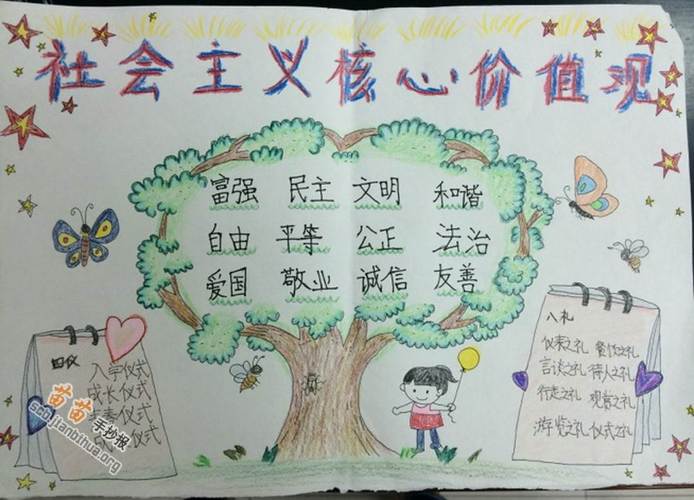 社会主义核心价值观
富强 民主 文明 和谐
自由 平等 公正 法治
爱国 敬业 诚信 友善
四仪
入学仪式
成长仪式
仪式
仪式
八礼
仪表之礼 餐饮之礼
言谈之礼 待人之礼
行走之礼 观赏之礼
游览之礼 仪式之礼
苗苗
手抄报
scb.jianbihua.org